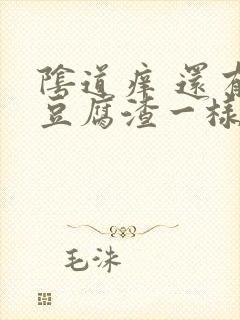 陰道痒 還有
豆腐渣一樣
毛洙